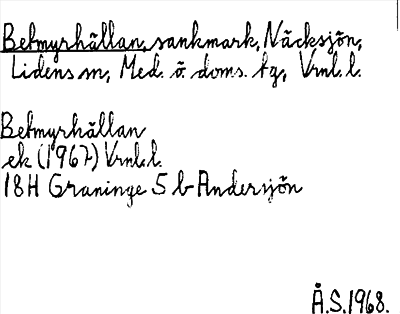 Betmyrhällan, sankmark, Näcksjön,
Lidens sn, Med. ö. doms. tg, Vrnl. l.
Betmyrhällan
ek (1967) Vrnl. l.
18H Graninge 5 b Andersjön
Å.S. 1968.